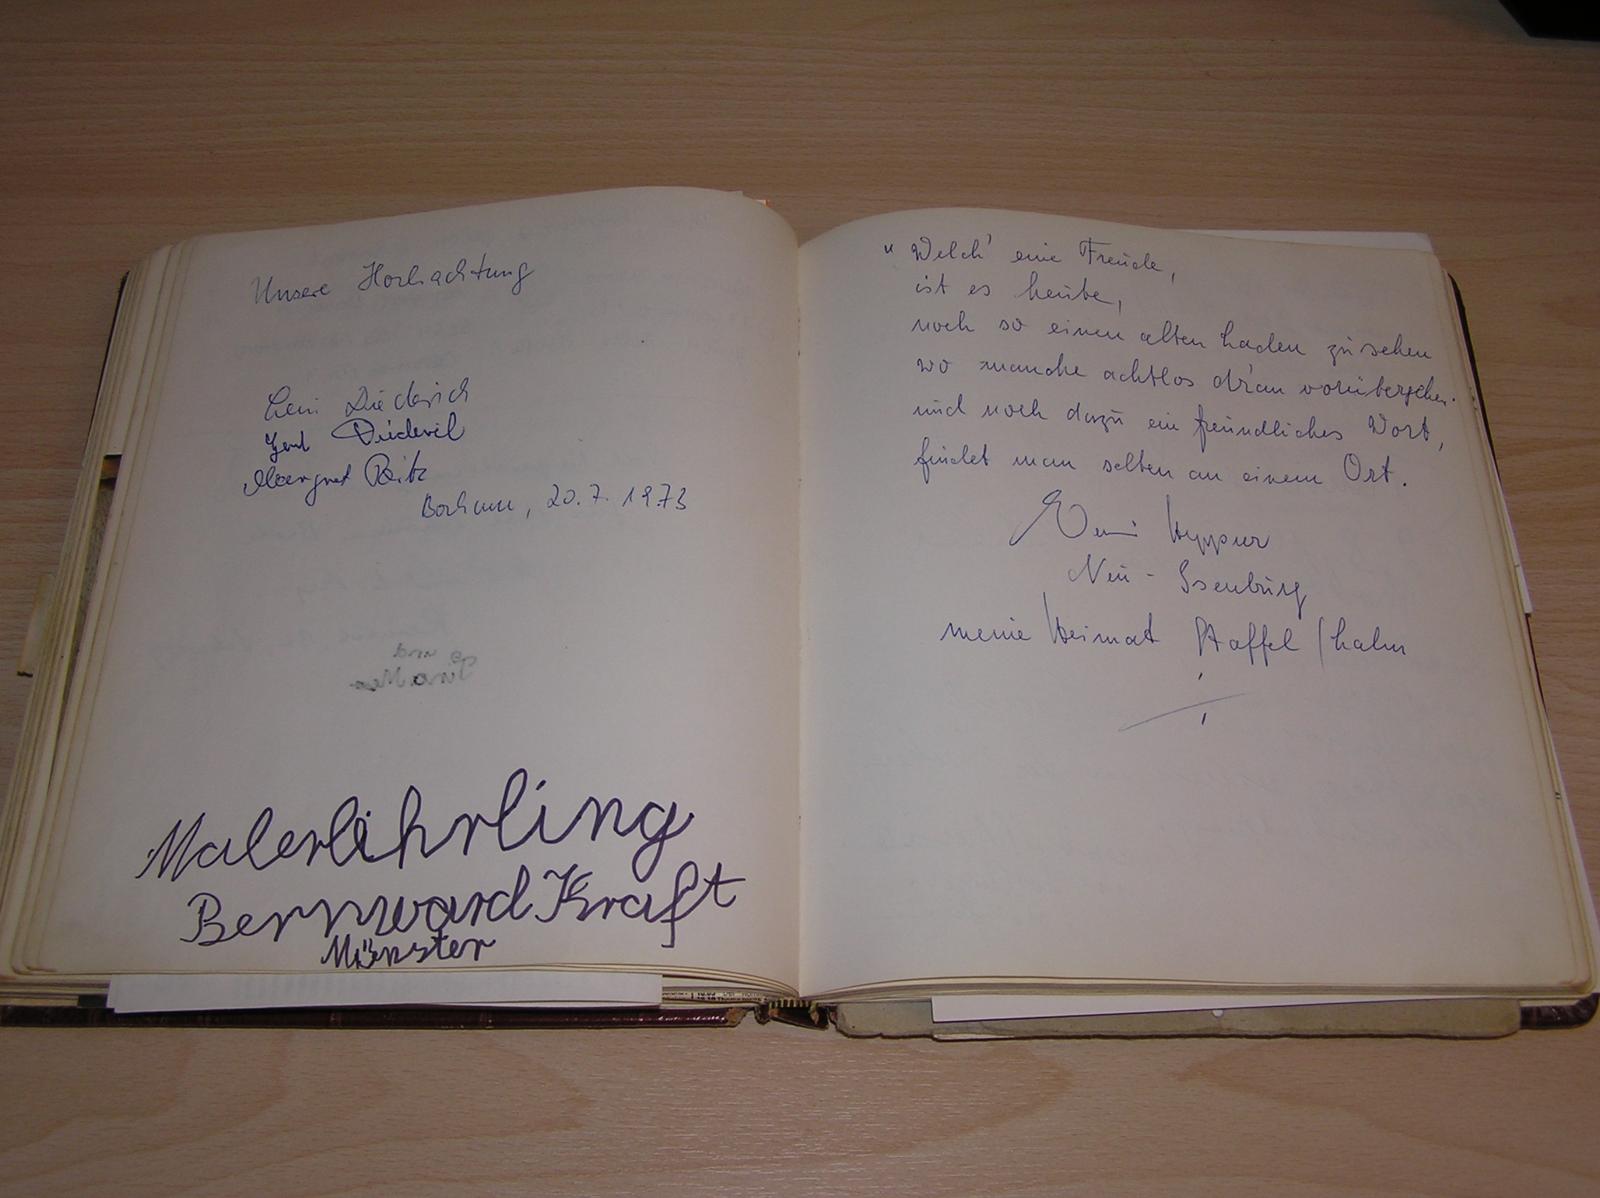 Unsere Hochachtung
Leni Diederich
Diederich
Margret Reitz
Bochum, 20.7.1973
Malerlehrling
Bernward Kraft
Münster
"Welch' eine Freude,
ist es heute,
noch so einen alten Laden zu sehen
wo manche achtlos dran vorübergehen.
und noch dazu ein freundliches Wort,
findet man selten an einem Ort.
Neu-Isenburg
meine Heimat Staffel/Lahn